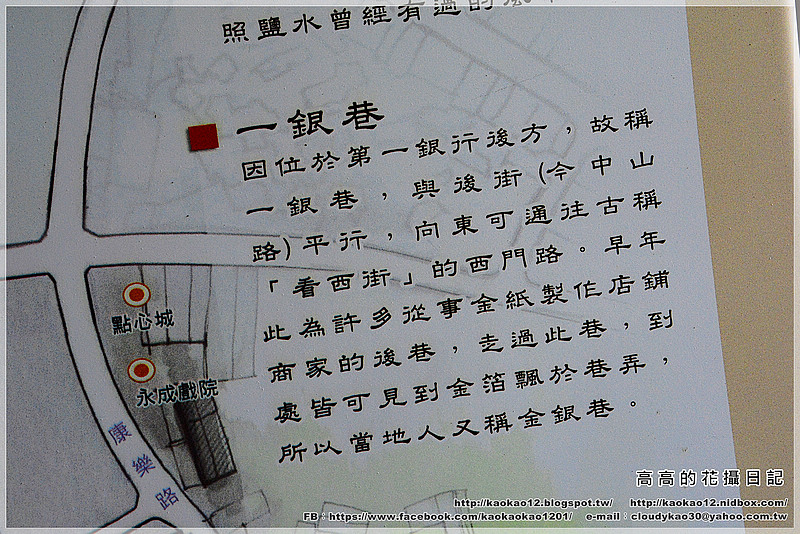 照鹽水曾經有過的風華
一銀巷
因位於第一銀行後方，故稱
一銀巷，與後街(今中山
路)平行，向東可通往古稱
「看西街」的西門路。早年
此為許多從事金紙製作店鋪
商家的後巷，走過此巷，到
處皆可見到金箔飄於巷弄，
所以當地人又稱金銀巷。
點心城
永成戲院
康樂路
高高的花攝日記
http://kaokao12.blogspot.tw/ http://kaokao12.nidbox.com/
FB：https://www.facebook.com/kaokaokao1201/ e-mail：cloudykao30@yahoo.com.tw